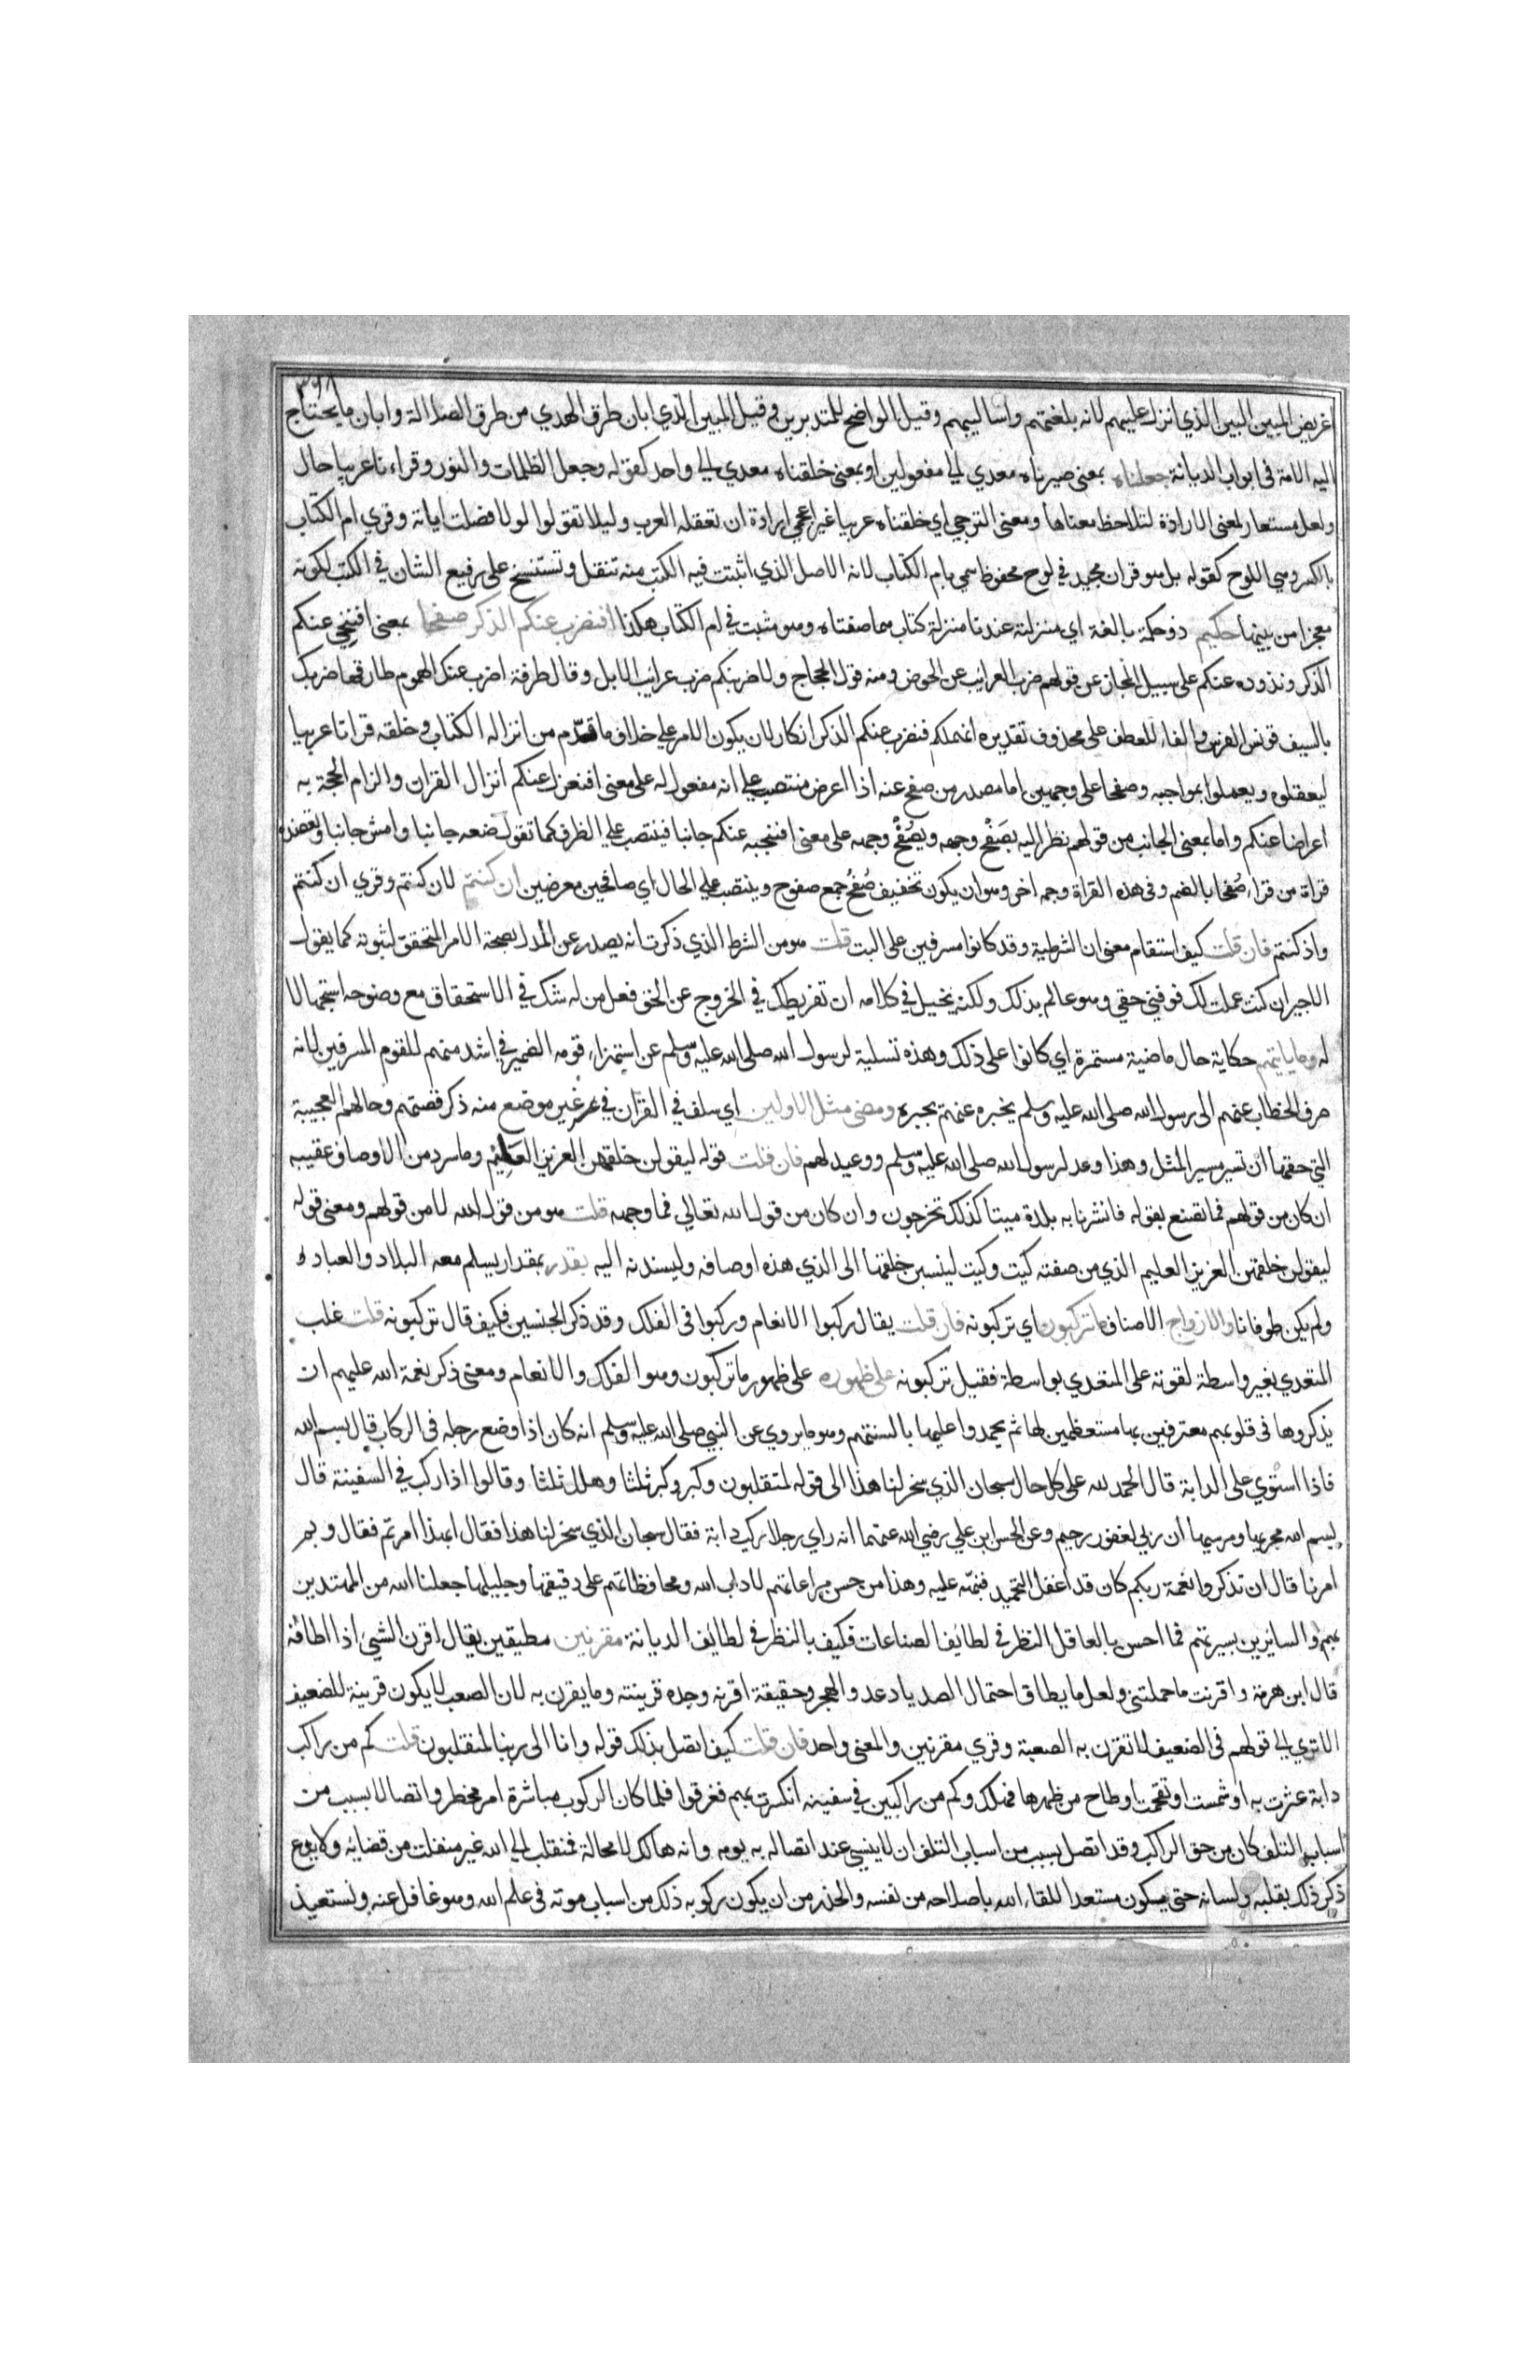 ٣٦٨
اغريض المبين البين الذي انزل عليهم لانه بلغتهم واساليبهم وقيل الواضح للمتدبرين وقيل المبين الذي ابان طرق الهدي من طرق الضلالة وابان ما يحتاج
اليه الامة في ابواب الديانة جعلناه بمعنى صيرناه معدي الي مفعولين او بمعنى خلقناه معدي الي واحد كقوله وجعل الظلمات والنور وقراءنا عربيا حال
ولعل مستعار لمعنى الارادة لتلاحظ معناها ومعنى الترجي اي خلقناه عربيا غير اعجمي ارادة ان تعقله العرب وليلا تقولوا لولا فصلت اياته وقري ام الكتاب
بالكسر وسمي اللوح كقوله بل هو قران مجيد في لوح محفوظ سمي بام الكتاب لانه الاصل الذي اثبتت فيه الكتب منه تنقل وتستنسخ على رفيع الشان في الكتب لكونه
معجزا من بينها حكيم ذو حكمة بالغة اي منزلته عندنا منزلة كتاب هما صفتاه وهو مثبت في ام الكتاب هكذا افنضرب عنكم الذكر صفحا بمعنى افننحي عنكم
الذكر ونذوده عنكم على سبيل المجاز عن قولهم ضرب الغرائب عن الحوض ومنه قول الحجاج ولاضربنكم ضرب غرائب الابل وقال طرفة اضرب عنك الهموم طارقها ضربك
بالسيف قونس الفرس والفاء للعطف على محذوف تقديره انهملكم فنضرب عنكم الذكر انكار لان يكون الامر علي خلاف ما قدّم من انزاله الكتاب وخلقه قرانا عربيا
ليعقلوه ويعملوا بمواجبه وصفحا على وجهين اما مصدر من صفح عنه اذا اعرض منتصب علي انه مفعول له على معنى افنعزل عنكم انزال القران والزام الحجة به
اعراضا عنكم واما بمعنى الجانب من قولهم نظر اليه بصَفْح وجهه وبصُفْح وجهه على معنى افننحيه عنكم جانبا فينتصب علي الظرف كما تقول ضعه جانبا وامش جانبا وتعضده
قراة من قراء صُفحا بالضم وفي هذه القراة وجه اخر وهو ان يكون تخفيف صُفُح جمع صفوح وينتصب علي الحال اي صافحين معرضين ان كنتم لان كنتم وقري ان كنتم
واذ كنتم فان قلت كيف استقام معنى ان الشرطية وقد كانوا مسرفين على البت قلت هو من الشرط الذي ذكرت انه يصدر عن المدل بصحة الامر المتحقق لثبوته كما يقول
الاجير ان كنت عملت لك فوفني حقي وهو عالم بذلك ولكنه يخيل في كلامه ان تفريطك في الخروج عن الحق فعل من له شك في الاستحقاق مع وضوحه استجهالا
له وما ياتيهم حكاية حال ماضية مستمرة اي كانوا على ذلك وهذه تسلية لرسول الله صلى الله عليه وسلم عن استهزاء قومه الضمير في اشد منهم للقوم المسرفين لانه
صرف الخطاب عنهم الى رسول الله صلى الله عليه وسلم يخبره عنهم ومضى مثل الاولين اي سلف في القرآن في غير موضع منه ذكر قصتهم وحالهم العجيبة
التي حقها ان تسير مسير المثل وهذا وعد لرسول الله صلى الله عليه وسلم ووعيد لهم فان قلت قوله ليقولن خلقهن العزيز العليم وما سرد من الاوصاف عقيبه
ان كان من قولهم فما تصنع بقوله فانشرنا به بلدة ميتا كذلك تخرجون وان كان من قول الله تعالي فما وجهه قلت هو من قول الله لا من قولهم ومعنى قوله
ليقولن خلقهن العزيز العليم الذي من صفته كيت وكيت لينسبن خلقها الى الذي هذه اوصافه وليسندنه اليه بقدر بمقدار يسلم معه البلاد والعباد
ولم يكن طوفانا والازواج الاصناف ما تركبون اي تركبونه فان قلت يقال ركبوا الانعام وركبوا في الفلك وقد ذكر الجنسين فكيف قال تركبونه قلت غلب
المتعدي بغير واسطة لقوته على المتعدي بواسطة فقيل تركبونه على ظهوره على ظهور ما تركبون وهو الفلك والانعام ومعنى ذكر نعمة الله عليهم ان
يذكروها في قلوبهم معترفين بها مستعظمين لها ثم يحمدوا عليها بالسنتهم وهو ما يروي عن النبي صلى الله عليه وسلم انه كان اذا وضع رجله في الركاب قال بسم الله
فاذا استوي على الدابة قال الحمد لله على كل حال سبحان الذي سخر لنا هذا الى قوله لمنقلبون وكبر وكبر ثلثا وهلل ثلثا وقالوا اذا ركب في السفينة قال
بسم الله مجريها ومرسيها ان ربي لغفور رحيم وعن الحسن ابن علي رضي الله عنهما انه راي رجلا يركب دابة فقال سبحان الذي سخر لنا هذا فقال ابهذا امرتم فقال وبم
امرنا قال ان تذكروا نعمة ربكم كان قد اغفل التحميد فنبهه عليه وهذا من حسن مراعاتهم لاداب الله ومحافظاتهم على دقيقها وجليلها جعلنا الله من المهتدين
بهم والسائرين بسيرتهم فما احسن بالعاقل النظر في لطائف الصناعات فكيف بالنظر في لطائف الديانة مقرنين مطيقين يقال اقرن الشيئ اذا اطاقه
قال ابن هرمة واقرنت ما حملتني ولعل ما يطاق احتمال الصد يا دعد والهجر وحقيقة اقرنه وجده قرينته وما يقرن به لان الصعب لا يكون قرينة للضعيف
الا تري الي قولهم في الضعيف لا تقرن به الصعبة وقري مقرنين والمعنى واحد فان قلت كيف اتصل بذلك قوله وانا الى ربنا لمنقلبون قلت كم من راكب
دابة عثرت به او شمست او تقحمت او طاح من ظهرها فهلك وكم من راكبين في سفينه انكسرت بهم فغرقوا فلما كان الركوب مباشرة امر مخطر واتصالا بسبب من
اسباب التلف كان من حق الراكب وقد اتصل بسبب من اسباب التلف ان لا ينسي عند اتصاله به يومه وانه هالك لا محالة فمنقلب الي الله غير منفلت من قضايه ولا يدع
ذكر ذلك بقلبه ولسانه حتى يكون مستعدا للقاء الله باصلاحه من نفسه والحذر من ان يكون ركوبه ذلك من اسباب موته في علم الله وهو غافل عنه ونستعيذ